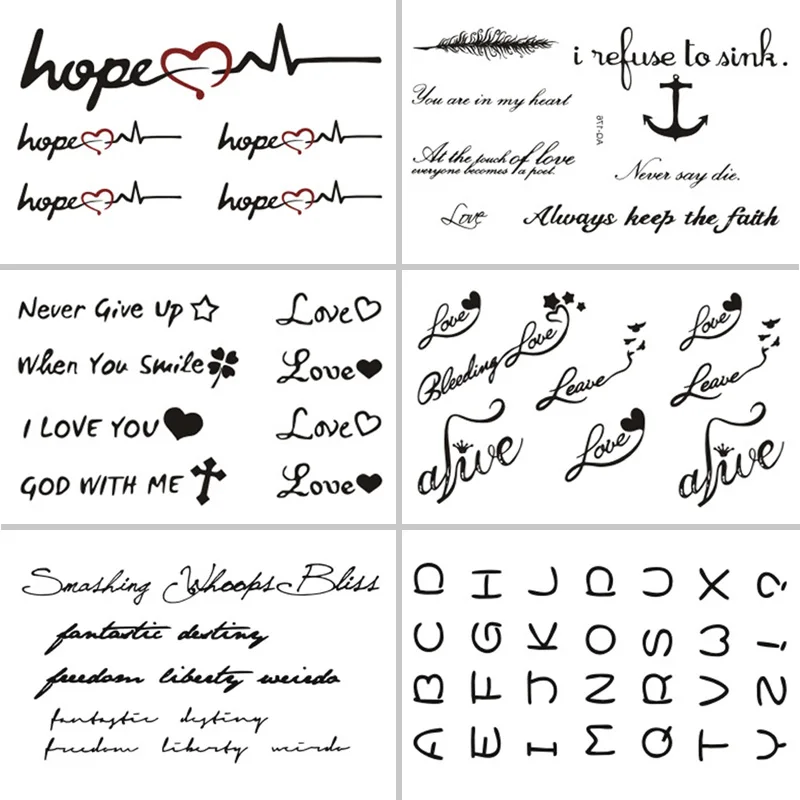 hope
hope hope
hope hope
i refuse to sink.
You are in my heart
At the touch of love
everyone becomes a poet.
Never say die.
Love
Always keep the faith
Never Give Up Love
When You Smile Love
I LOVE YOU Love
GOD WITH ME Love
Love Love
Bleeding Love
Leave Leave
alive Love alive
Smashing Whoops Bliss
fantastic destiny
freedom liberty weirdo
fantastic destiny
freedom liberty weirdo
A B C D
E F G H
I J K L
M N O P
Q R S U
T V W X
Y Z ! ?